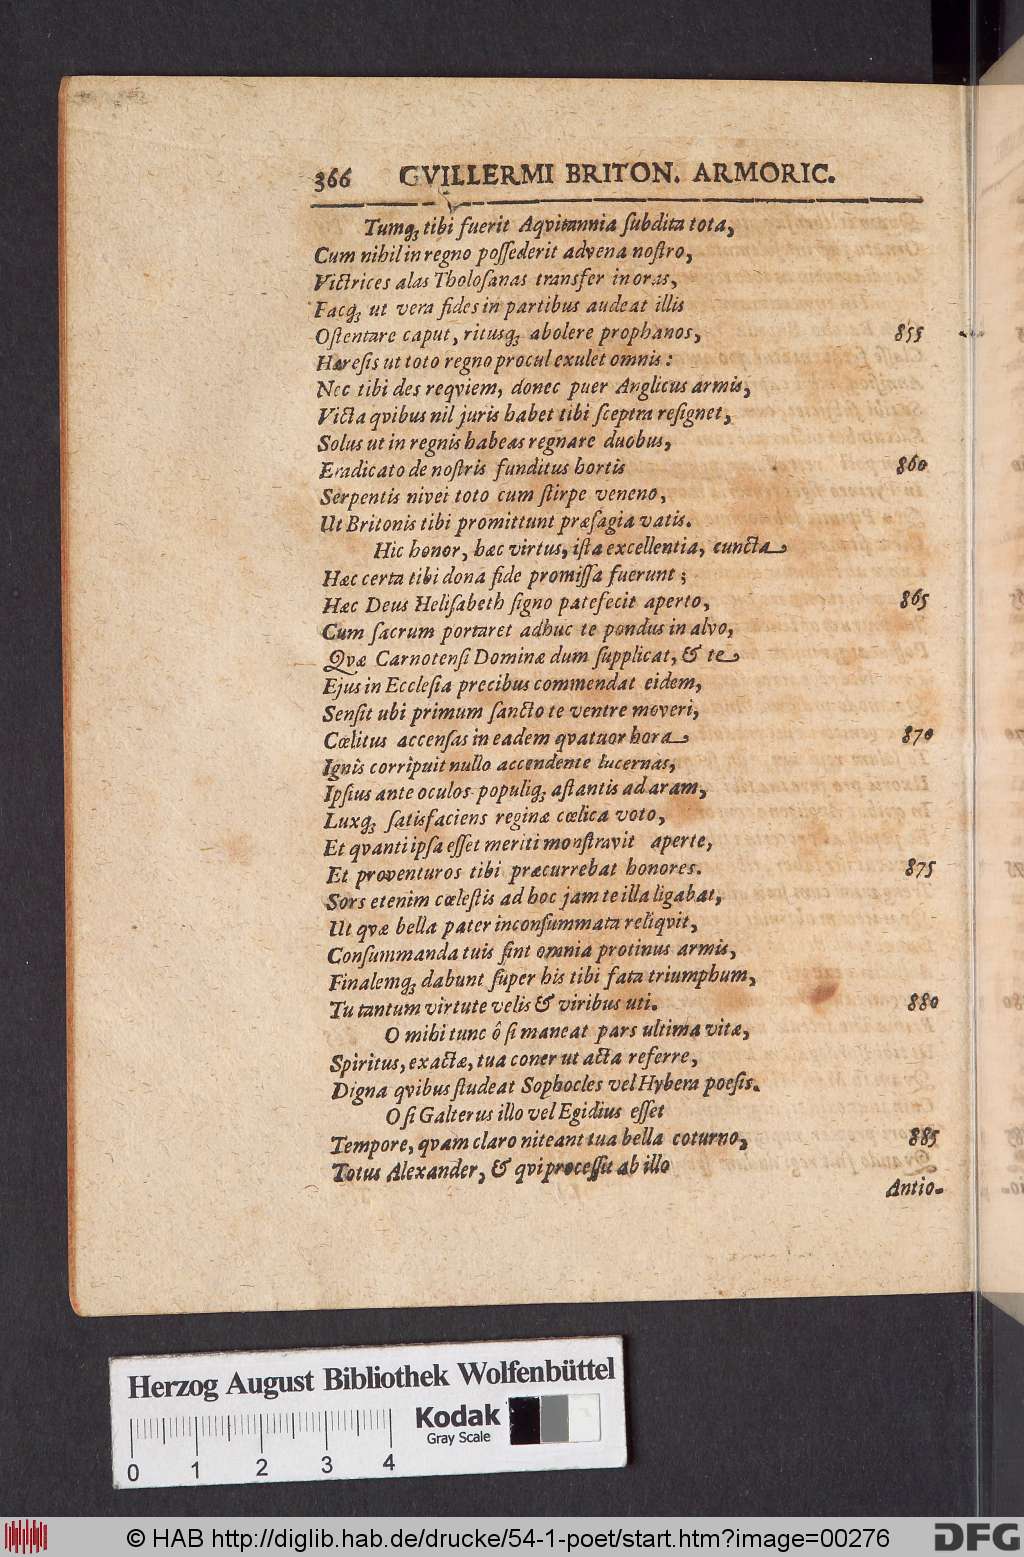 366 GVILLERMI BRITON. ARMORIC.
Tumq́ꝫ tibi fuerit Aqvitannia ſubdita tota,
Cum nihil in regno poſſederit advena noſtro,
Victrices alas Tholoſanas transfer in oras,
Facq́ꝫ ut vera fides in partibus audeat illis
Oſtentare caput, ritusq́ꝫ abolere prophanos, 855
Hæreſis ut toto regno procul exulet omnis:
Nec tibi des reqviem, donec puer Anglicus armis,
Victa qvibus nil juris habet tibi ſceptra reſignet,
Solus ut in regnis habeas regnare duobus,
Eradicato de noſtris funditus hortis 860
Serpentis nivei toto cum ſtirpe veneno,
Ut Britonis tibi promittunt præſagia vatis.
Hic honor, hæc virtus, iſta excellentia, cuncta
Hæc certa tibi dona fide promiſſa fuerunt;
Hæc Deus Heliſabeth ſigno patefecit aperto, 865
Cum ſacrum portaret adhuc te pondus in alvo,
Qvæ Carnotenſi Dominæ dum ſupplicat, & te
Ejus in Eccleſia precibus commendat eidem,
Senſit ubi primum ſancto te ventre moveri,
Cœlitus accenſas in eadem qvatuor hora 870
Ignis corripuit nullo accendente lucernas,
Ipſius ante oculos populiq́ꝫ aſtantis ad aram,
Luxq́ꝫ ſatisfaciens reginæ cœlica voto,
Et qvanti ipſa eſſet meriti monſtravit aperte,
Et proventuros tibi præcurrebat honores. 875
Sors etenim cœleſtis ad hoc jam te illa ligabat,
Ut qvæ bella pater inconſummata reliqvit,
Conſummanda tuis ſint omnia protinus armis,
Finalemq́ꝫ dabunt ſuper his tibi fata triumphum,
Tu tantum virtute velis & viribus uti. 880
O mihi tunc ô ſi maneat pars ultima vitæ,
Spiritus, exactæ, tua coner ut acta referre,
Digna qvibus ſtudeat Sophocles vel Hybera poeſis.
O ſi Galterus illo vel Egidius eſſet
Tempore, qvam claro niteant tua bella coturno, 885
Totus Alexander, & qvi proceſſit ab illo
Antio-
Herzog August Bibliothek Wolfenbüttel
Kodak
Gray Scale
0 1 2 3 4
© HAB http://diglib.hab.de/drucke/54-1-poet/start.htm?image=00276
DFG